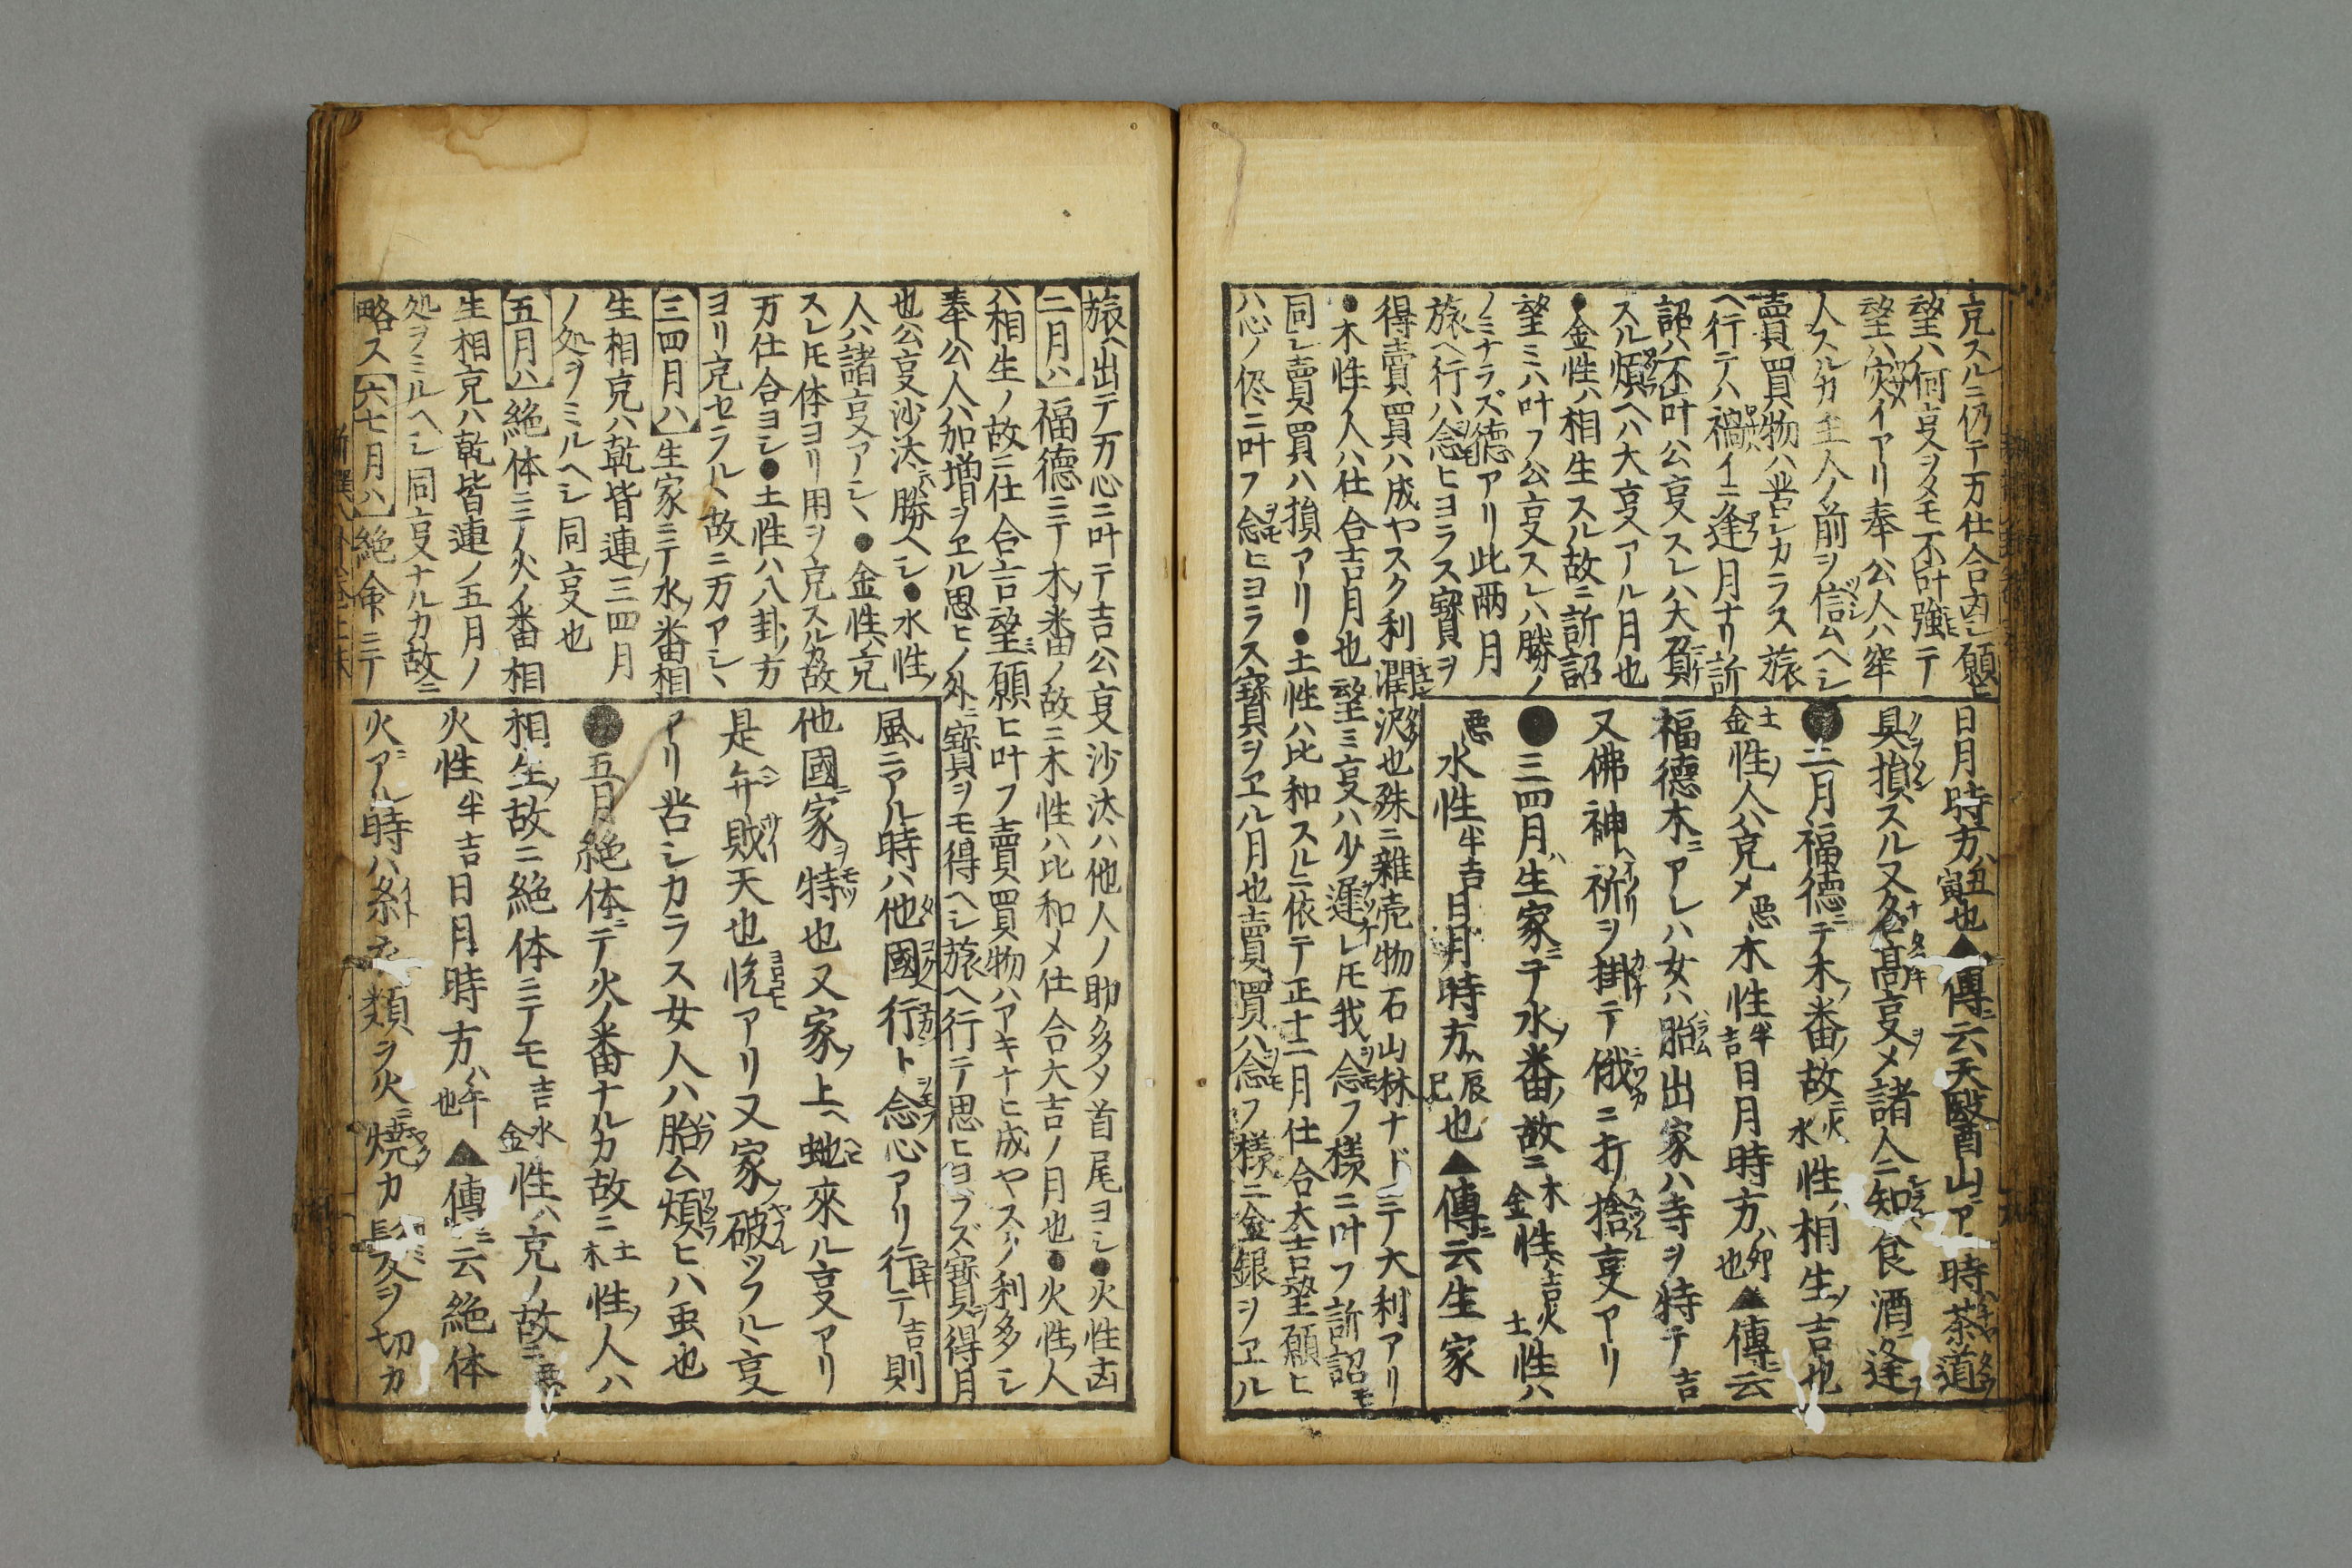 克スルニ仍テ万仕合凶シ願ヒ
望ハ何事ヲタモ不叶強テ
望ハ灾イアリ奉公人ハ牢
人スルカ主人ノ前ヲ信ムヘシ
賣買物ハ苦シカラス旅
ヘ行テハ禍イニ逢月ナリ訴
詔ハ不叶公事スレハ大負
スル煩ヘハ大事アル月也
●金性ハ相生スル故ニ訴詔
望ミハ叶フ公事スレハ勝ノ
ノミナラズ徳アリ此兩月
旅ヘ行ハ念ヒヨラス寳ヲ
得賣買ハ成ヤスク利潤沢也殊ニ雜売物石山林ナドニテ大利アリ
●木性ノ人ハ仕合吉月也望ミ事ハ少遅レ𪜈我念フ様ニ叶フ訴詔モ
同シ賣買ハ損アリ●土性ハ比和スルニ依テ正十二月仕合大吉望願ヒ
ハ心ノ侭ニ叶フ念ヒヨラス寳ヲヱル月也賣買ハ念フ様ニ金銀ヲヱル
日月時方ハ丑寅也▲傳ニ云天醫山ニアル時茶道
具損スル又名高事ヲメ諸人ニ知食酒ニ逢
●二月福德ニテ木ノ番ノ故ニ火水性ハ相生ノ吉也
土金性ノ人ハ克メ惡木性半吉日月時方ハ卯也▲傳ニ云
福德木ニアレハ女ハ胎出家ハ寺ヲ持テ吉
又佛神ヘ祈ヲ掛テ俄ニ打捨事アリ
●三四月ハ生家ニテ水ノ番ノ故ニ木金性ハ吉火土性ハ
惡水性半吉日月時方ハ辰巳也▲傳ニ云生家
旅ヘ出テ万心ニ叶テ吉公事沙汰ハ他人ノ助多メ首尾ヨシ●火性凶
二月ハ福德ニテ木ノ番ノ故ニ木性ハ比和メ仕合大吉ノ月也●火性ノ人
ハ相生ノ故ニ仕合吉望ミ願ヒ叶フ賣買物ハアキナヒ成ヤスク利多シ
奉公人ハ加増ヲヱル思ヒノ外ニ寳ヲモ得ヘシ旅ヘ行テ思ヒヨラズ寳ヲ得月
也公事沙汰ニハ勝ヘシ●水性ノ
人ハ諸事アシヽ●金性ハ克
スレ𪜈体ヨリ用ヲ克スルカ故
万仕合ヨシ●土性ハ八卦ノ方
ヨリ克セラルヽ故ニ万アシヽ
三四月ハ生家ニテ水ノ番相
生相克ハ乾皆連ノ三四月
ノ処ヲミルヘシ同事也
五月ハ絶体ニテノ火ノ番相
生相克ハ乾皆連ノ五月ノ
処ヲミルヘシ同事ナルカ故ニ
略ス六七月ハ絶命ニテ
風ニアル時ハ他國ヘ行ト念心アリ行テ吉則
他國ニ家ヲ持也又家ノ上ヘ虵來ル事アリ
是弁賊天也悦アリ又家ノ破ツフルヽ事
アリ苦シカラス女人ハ胎ム煩ヒハ虫也
●五月絶体ニテ火ノ番ナルカ故ニ土木性ノ人ハ
相生ノ故ニ絶体ニテモ吉水金性ハ克ノ故ニ惡
火性半吉日月時方ハ午也▲傳ニ云絶体
火ニアル時ハ糸類ヲ火ニ燒カ髪ヲ切カ